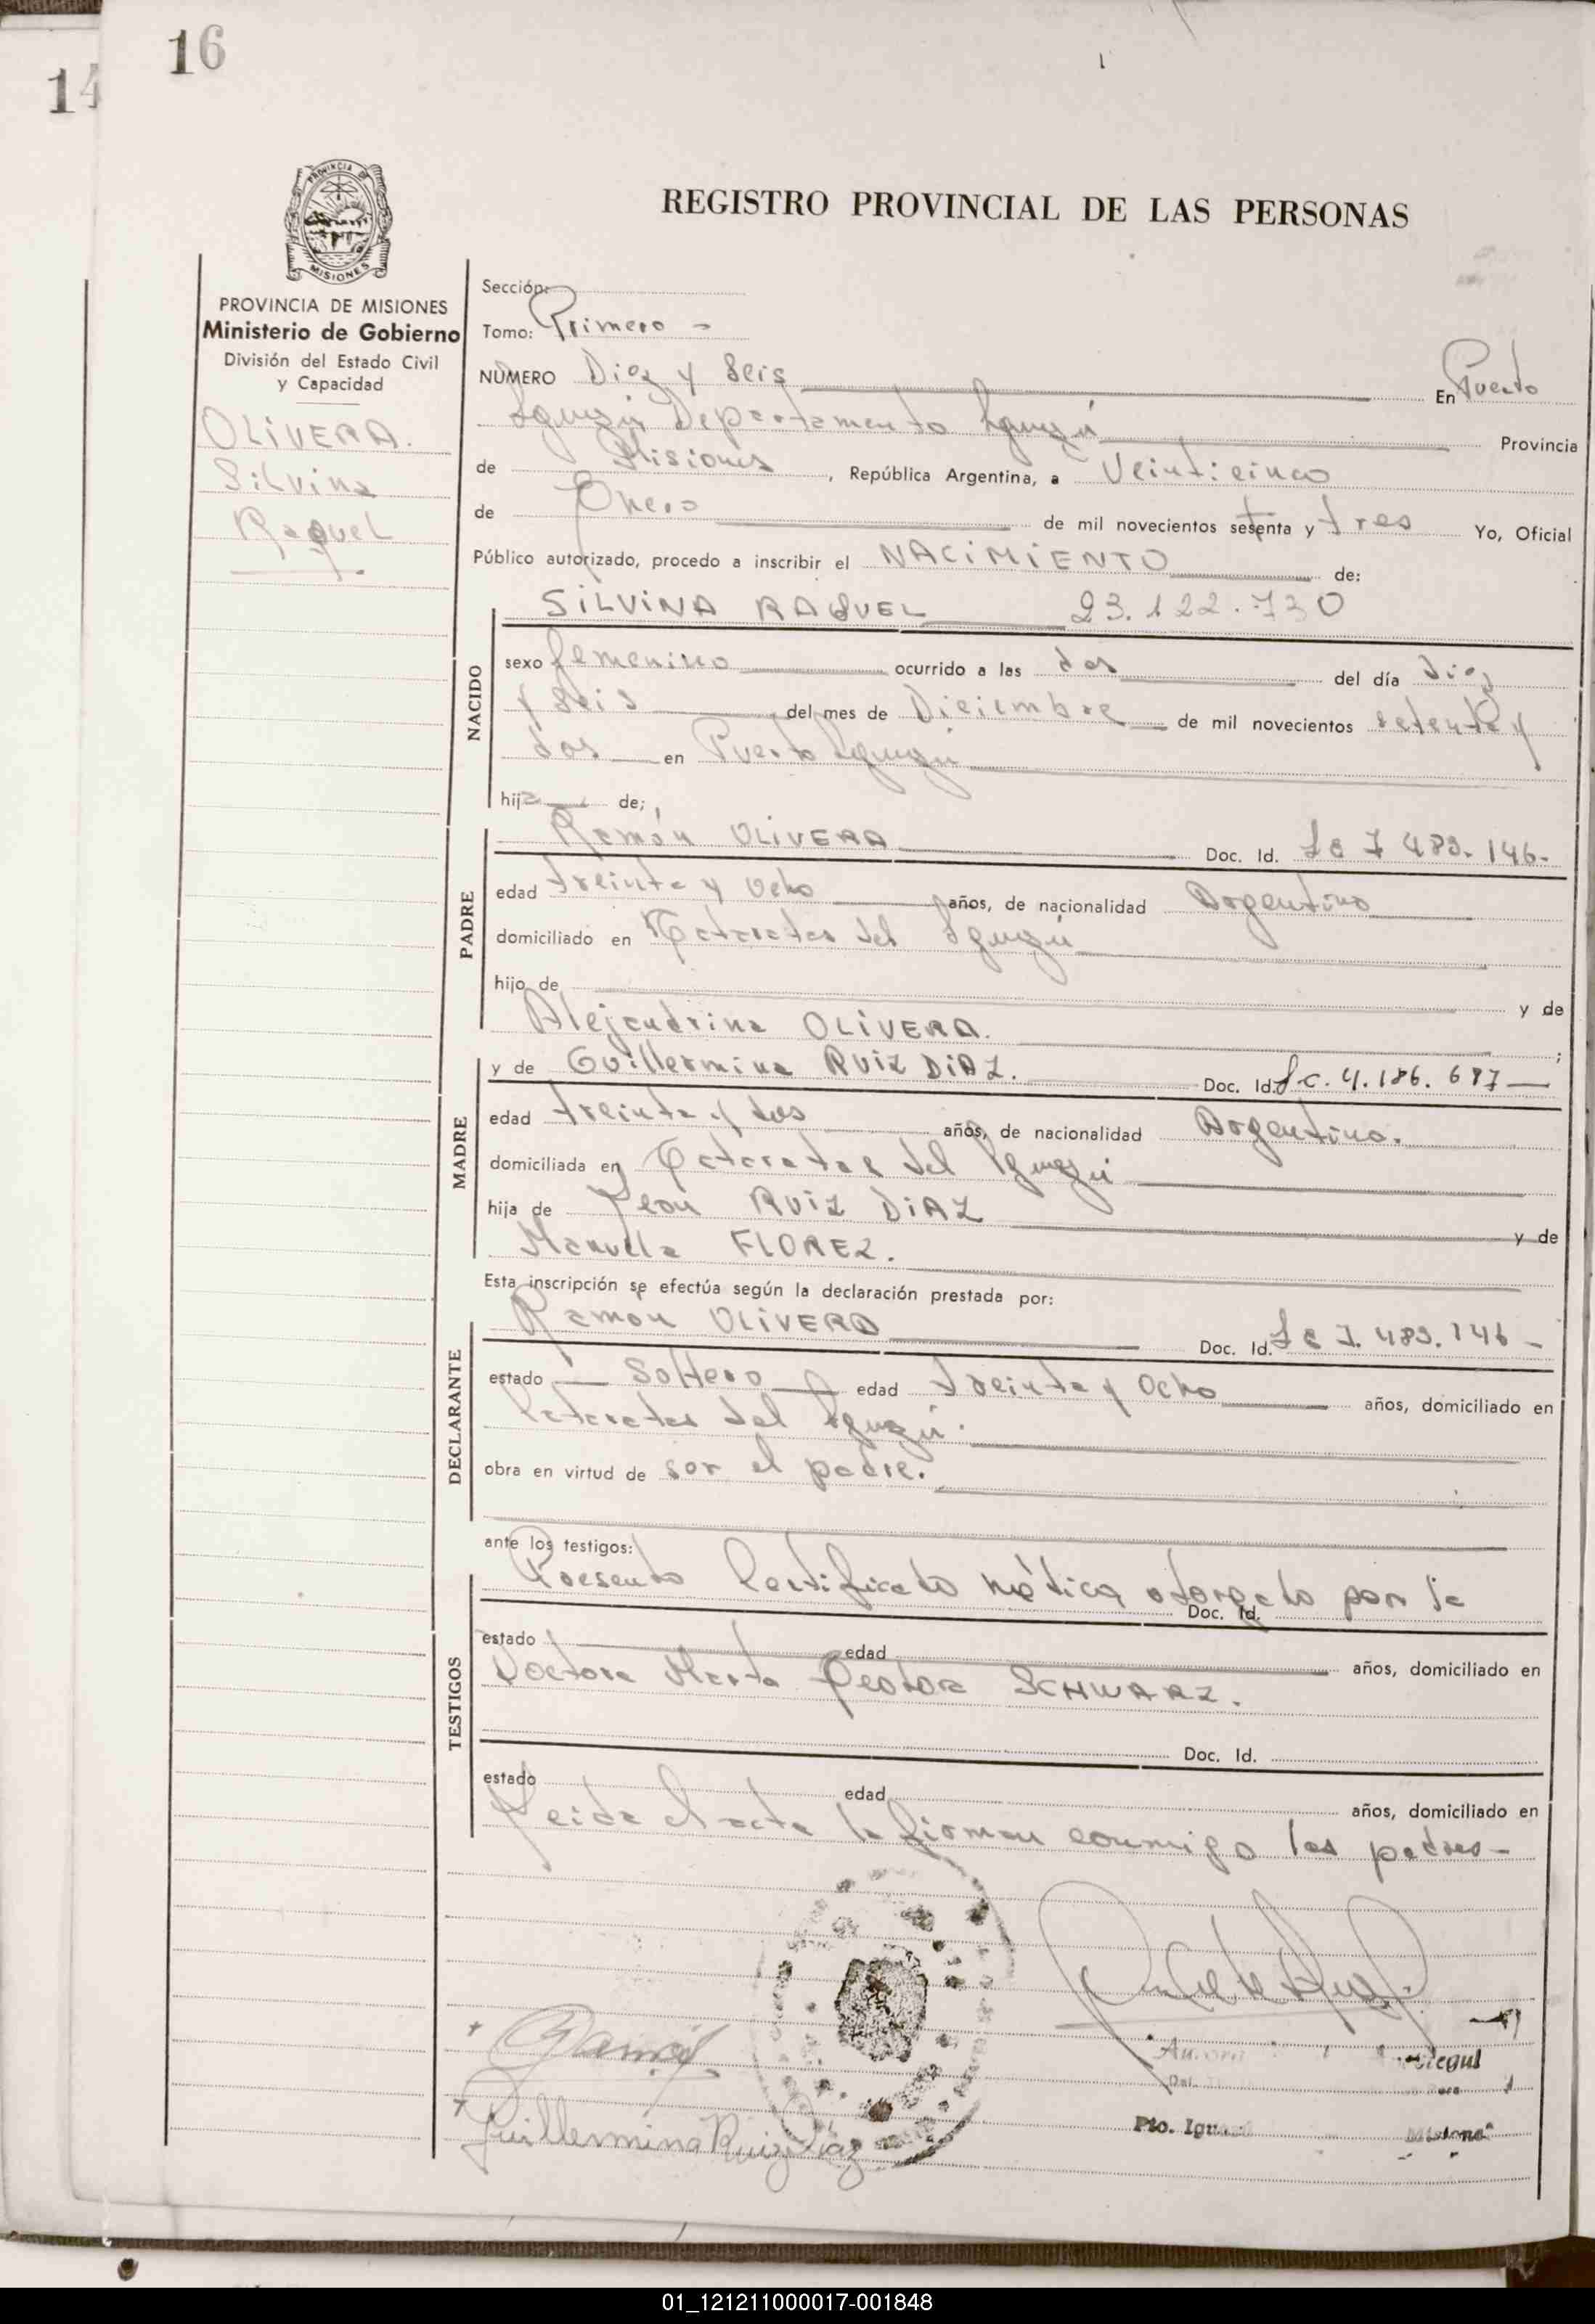 16
14
REGISTRO PROVINCIAL DE LAS PERSONAS
PROVINCIA DE MISIONES
PROVINCIA DE MISIONES
Ministerio de Gobierno
División del Estado Civil
y Capacidad
OLIVERA.
Silvina
Raquel
Sección:
Tomo: Primero -
NUMERO Diez y Seis En Puerto
Iguazú Departamento Iguazú Provincia
de Misiones, República Argentina, a Veinticinco
de Enero de mil novecientos setenta y tres Yo, Oficial
Público autorizado, procedo a inscribir el NACIMIENTO de:
SILVINA RAQUEL 23.122.730
NACIDO
sexo femenino ocurrido a las dos del día diez
y seis del mes de Diciembre de mil novecientos setenta y
dos en Puerto Iguazú
hija de;
PADRE
Ramón OLIVERA Doc. Id. Le 7 483. 146-
edad treinta y ocho años, de nacionalidad Argentino
domiciliado en Cataratas del Iguazú
hijo de y de
Alejandrina OLIVERA.
MADRE
y de Guillermina RUIZ DIAZ. Doc. Id. Lc. 4.186.687
edad treinta y dos años, de nacionalidad Argentina.
domiciliada en Cataratas del Iguazú
hija de León RUIZ DIAZ y de
Manuela FLOREZ.
Esta inscripción se efectúa según la declaración prestada por:
DECLARANTE
Ramon OLIVERA Doc. Id. Le 7. 483. 146 -
estado Soltero edad treinta y Ocho años, domiciliado en
Cataratas del Iguazú.
obra en virtud de ser el padre.
ante los testigos:
TESTIGOS
Presento Certificado médico, otorgado por la
Doc. Id.
estado edad años, domiciliado en
Doctora Marta Teodora SCHWARZ.
Doc. Id.
estado edad años, domiciliado en
Leida el acta la firman conmigo los padres-
Ramón
Guillermina Ruiz Diaz
Pto. Iguazú Misiones
01_121211000017-001848